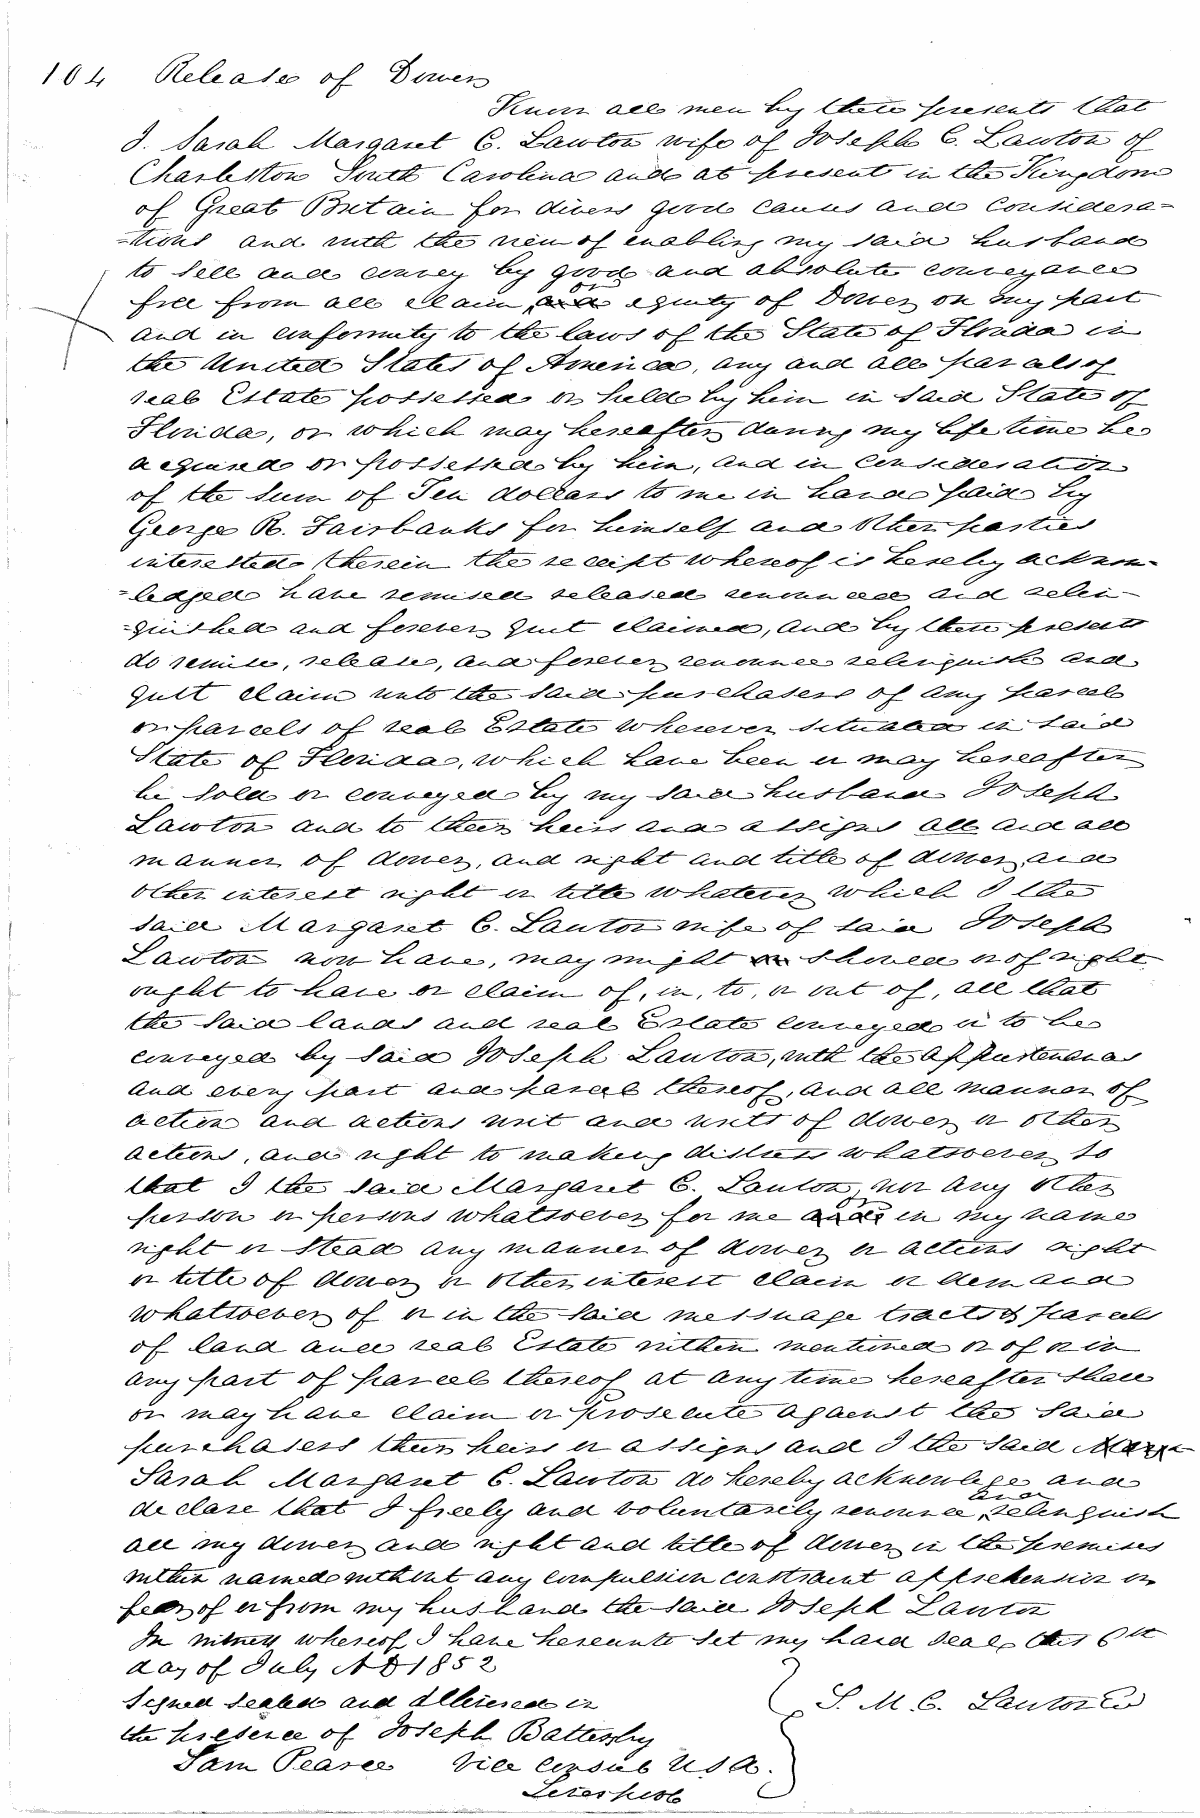 104 Release of Dower
Know all men by these presents that
I. Sarah Margaret C. Lawton wife of Joseph C. Lawton of
Charleston South Carolina and at present in the Kingdom
of Great Britain for divers good causes and considera=
=tions and with the view of enabling my said husband
to sell and convey by good and absolute conveyance
free from all claim, or equity of Dower on my part
and in conformity to the laws of the State of Florida in
the United States of America, any and all parcels of
real Estate possessed or held by him in said State of
Florida, or which may hereafter during my life time be
acquired or possessed by him, and in consideration
of the sum of Ten dollars to me in hand paid by
George R. Fairbanks for himself and other parties
interested therein the receipt whereof is hereby acknow-
=ledged have remised released renounced and relin-
=quished and forever quit claimed, and by these presents
do remise, release, and forever renounce relinquish and
quit claim unto the said purchasers of any parcel
or parcels of real Estate wherever situated in said
State of Florida, which have been or may hereafter
be sold or conveyed by my said husband Joseph
Lawton and to their heirs and assigns all and all
manner of dower, and right and title of dower and
other interest right or title whatever which I the
said Margaret C. Lawton wife of said Joseph
Lawton now have, may might or should or of right
ought to have or claim of, in, to, or out of, all that
the said lands and real Estate conveyed or to be
conveyed by said Joseph Lawton, with the appurtenances
and every part and parcel thereof, and all manner of
action and actions writ and writs of dower or other
actions, and right to making distress whatsoever so
that I the said Margaret C. Lawton, nor any other
person or persons whatsoever for me or in my name
right or stead any manner of dower or actions right
or title of dower or other interest claim or demand
whatsoever of or in the said messuage tracts & parcels
of land and real Estate within mentioned or of or in
any part of parcel thereof at any time hereafter shall
or may have claim or prosecute against the said
purchasers their heirs or assigns and I the said
Sarah Margaret C. Lawton do hereby acknowlege and
declare that I freely and voluntarily renounce, and relinquish
all my dower and right and title of dower in the premises
within named without any compulsion constraint apprehension or
fear of or from my husband the said Joseph Lawton
In witness whereof I have hereunto set my hand seal this 6th
day of July AD 1852
Signed sealed and delivered in S. M. C. Lawton
the presence of Joseph Battersby
Sam Pearce Vice Consul U.S.A.
Liverpool